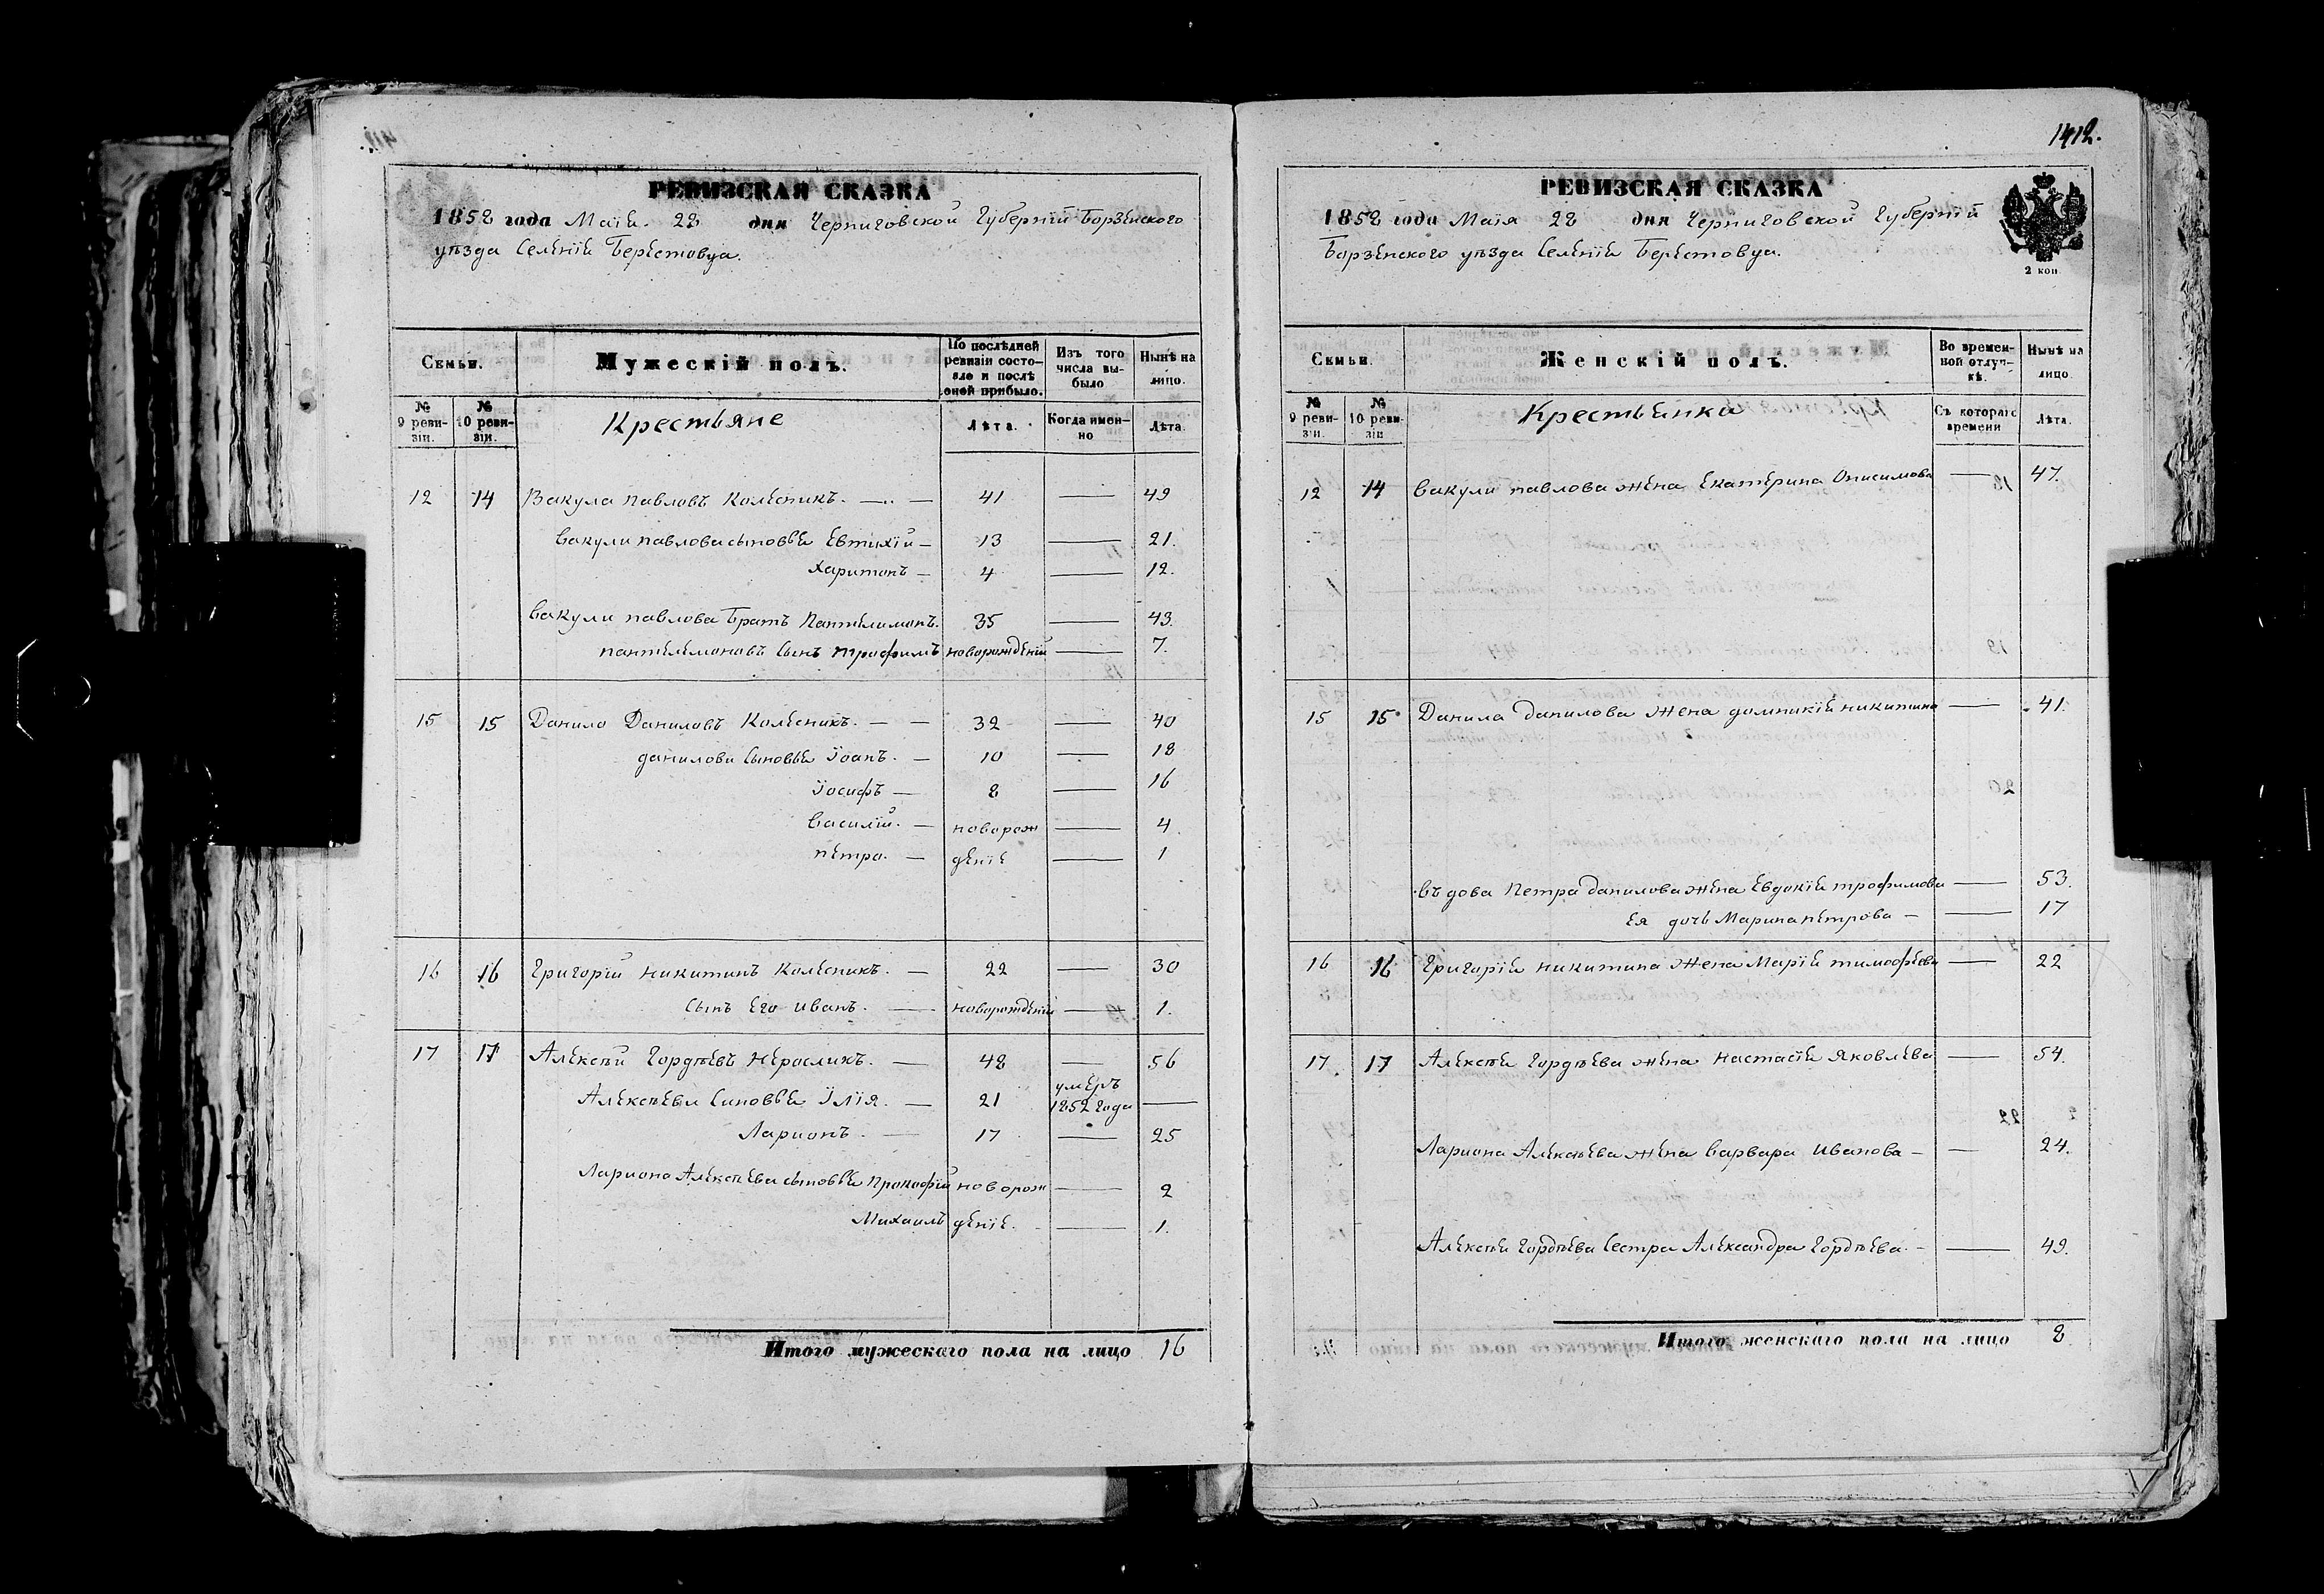 РЕВИЗСКАЯ СКАЗКА
1858 года Маія. 28 дня Черниговской Губерніи Борзенского
уѣзда Селенія Берестовца.
Семьи.
Мужескій полъ.
По послѣдней ревизіи состояло и послѣ оной прибыло.
Изъ того числа выбыло
Нынѣ на лицо.
№ 9 ревизіи.
№ 10 ревизіи.
Крестьяне
Лѣта.
Когда именно
Лѣта.
12 14 Вакула Павловъ Колесникъ. — — 41 — 49
Вакули павлова сыновья Евтихій — 13 — 21.
Харитонъ — 4 — 12.
Вакули павлова Братъ Пантелимонъ. 35 — 43.
пантелемоновъ Сынъ Трофимъ новорожденій — 7.
15 15 Данило Даниловъ Колесникъ. — — 32 — 40
данилови Сыновья Іоанъ. — 10 — 18
Іосифъ — 8 — 16
Василій. — новорож — 4
петро. — деніе — 1
16 16 Григорій Никитинъ Колесникъ. — 22 — 30
Сынъ Его Иванъ. — новорожденіи — 1.
17 17 Алексѣй Гордѣевъ Неросликъ. — 48 — 56
Алексѣеви Синовья Ілія. — 21 умеръ 1852 года —
Ларионъ. — 17 — 25
Лариона Алексѣева сыновья Прокофій новорож — 2
Михаилъ деніе. — 1.
Итого мужескаго пола на лицо 16
1412.
РЕВИЗСКАЯ СКАЗКА
1858 года Маія 28 дня Черниговской Губерніи
Борзенского уѣзда Селенія Берестовца.
2 коп
Семьи.
Женскій полъ.
Во временной отлучкѣ.
Нынѣ на лицо.
№ 9 ревизіи.
№ 10 ревизіи
Крестьянки
Съ котораго времени
Лѣта.
12 14 Вакули павлова жена Екатерина Онисимова — 47.
15 15 Данила данилова Жена домникія никитина — 41.
въдова Петра данилова жена Евдокія трофимова — 53.
Ея дочь Марина петрова — — 17
16 16 Григорія никитина Жена Марія тимофеева — 22
17 17 Алексѣя Гордѣева жена Настасія Яковлева — 54.
Лариона Алексѣева жена Варвара Иванова — — 24.
Алексѣя Гордѣева Сестра Александра Гордѣева. — — 49.
Итого женскаго пола на лицо 8